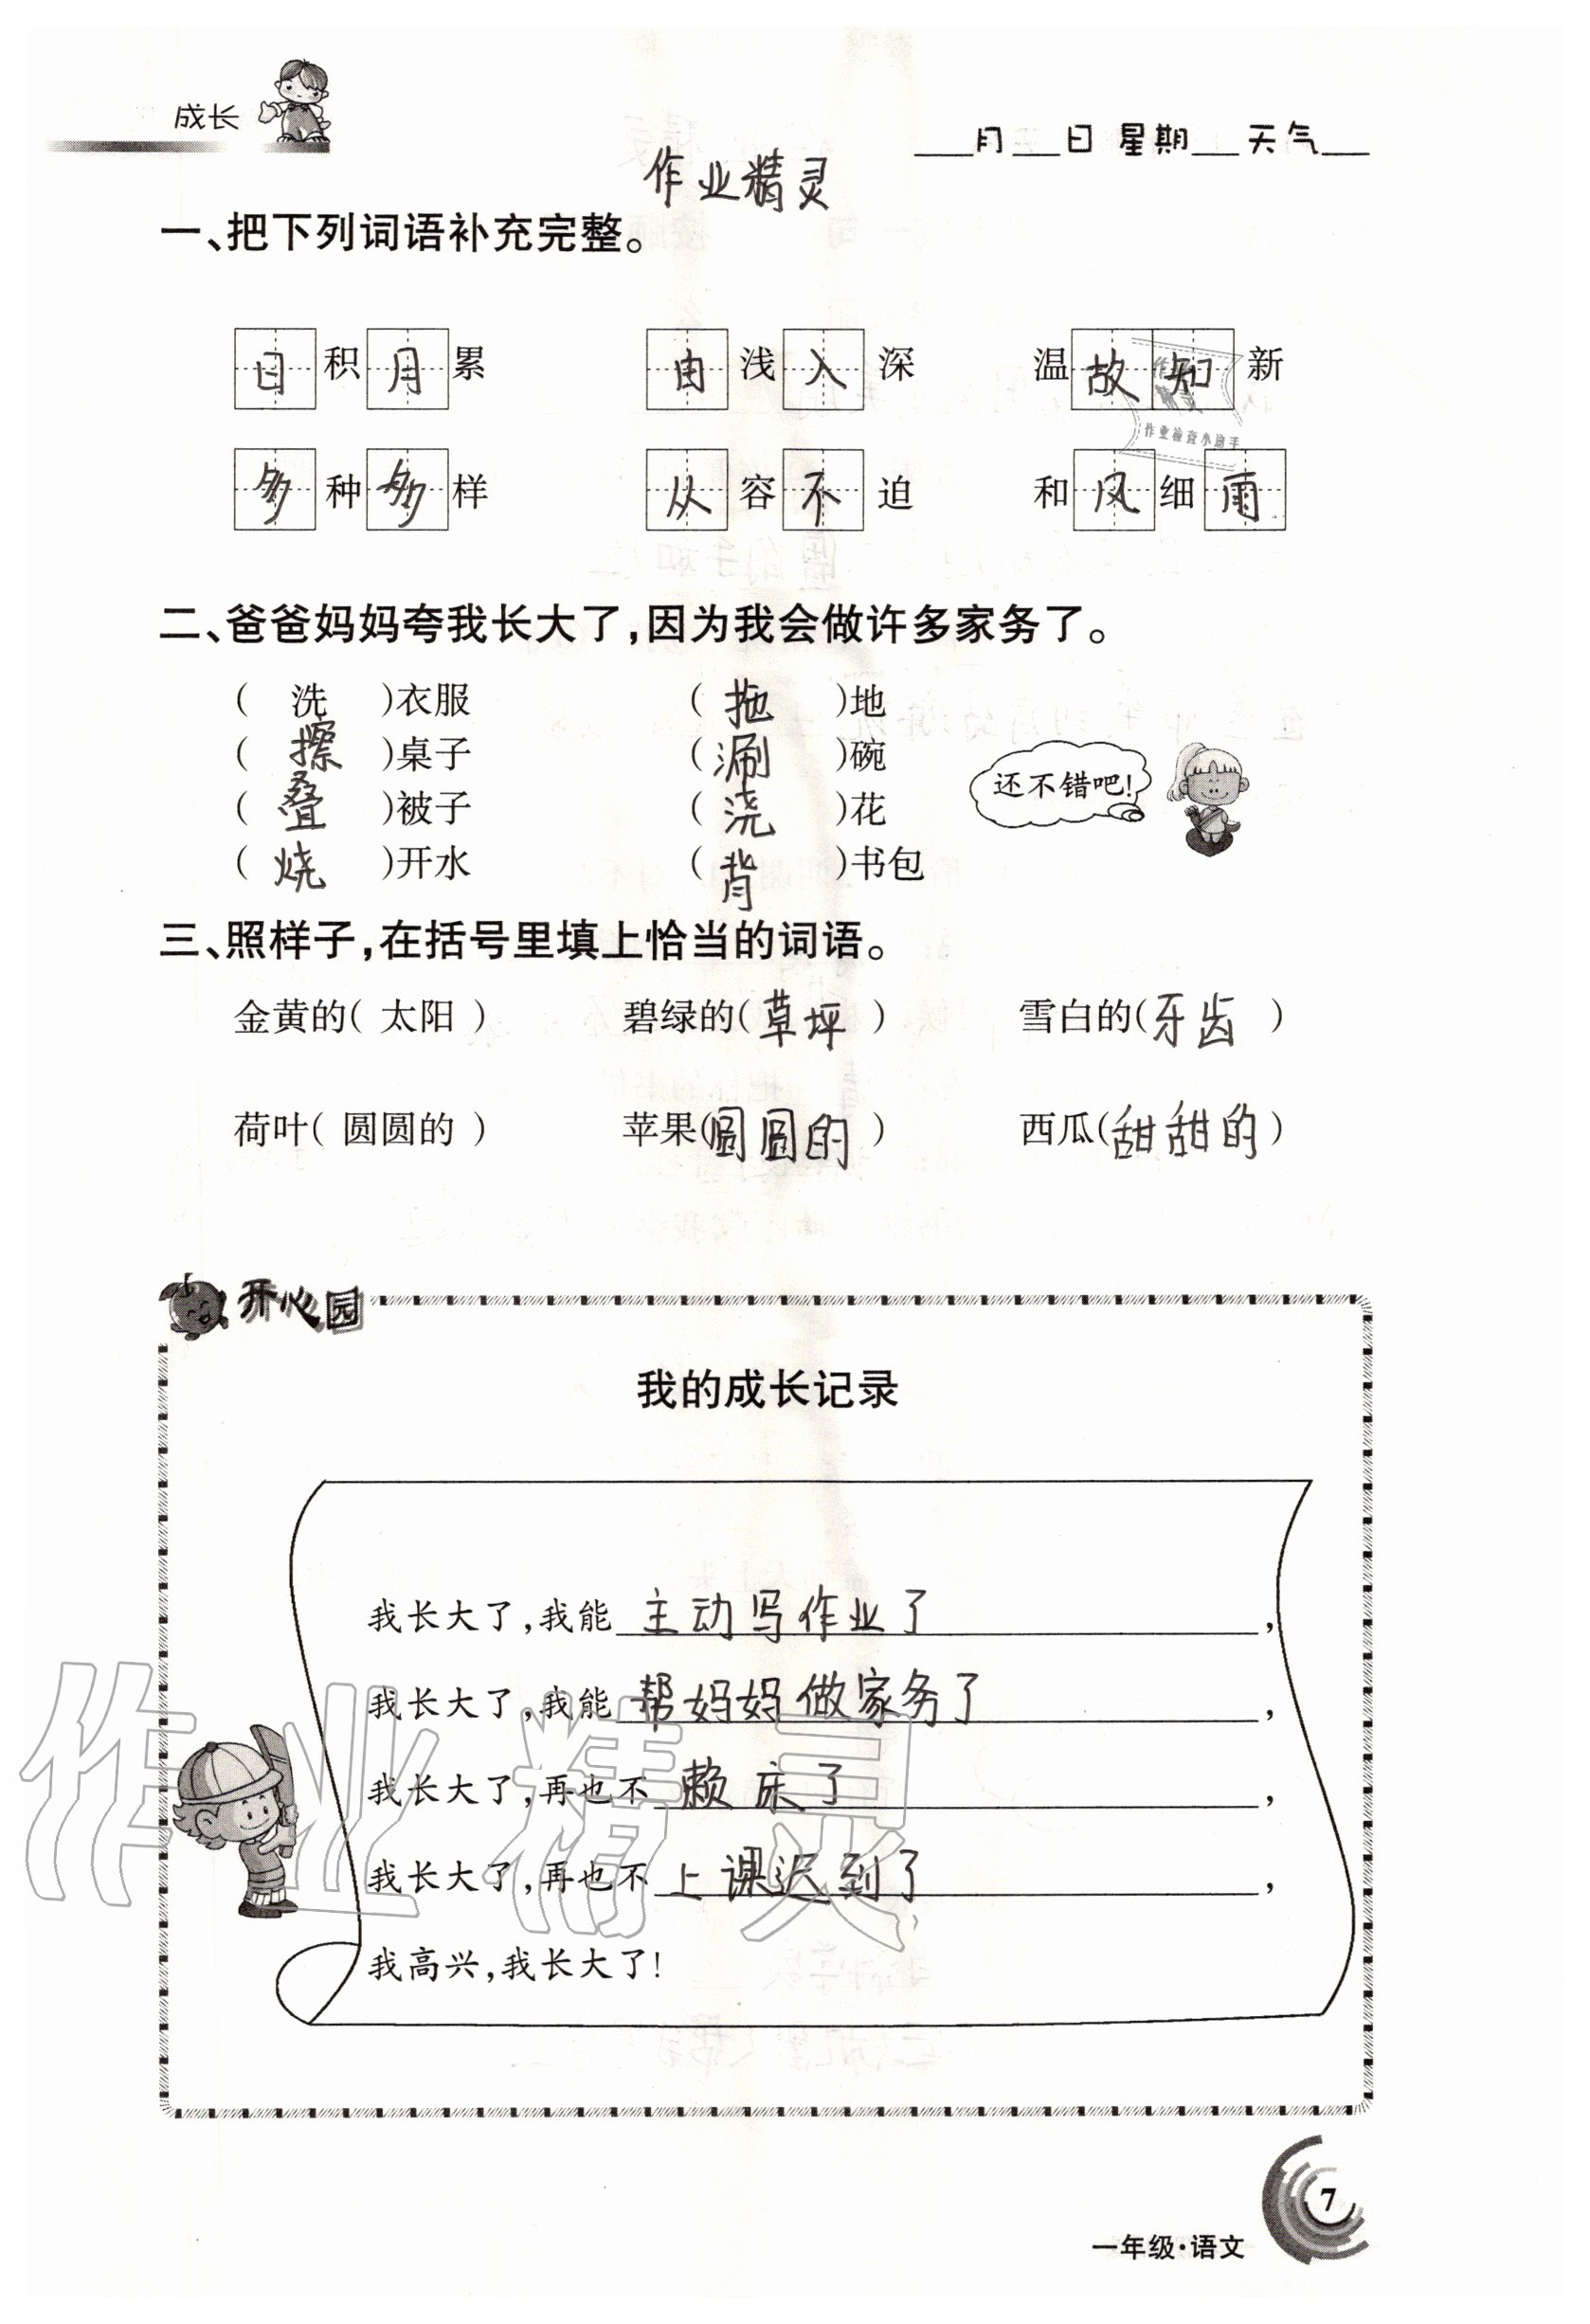 成长
___月___日 星期___天气___
作业精灵
一、把下列词语补充完整。
日积月累 由浅入深 温故知新
作业精灵
作业检查小助手
多种多样 从容不迫 和风细雨
二、爸爸妈妈夸我长大了,因为我会做许多家务了。
( 洗 )衣服 ( 拖 )地
( 擦 )桌子 ( 涮 )碗
还不错吧!
( 叠 )被子 ( 浇 )花
( 烧 )开水 ( 背 )书包
三、照样子,在括号里填上恰当的词语。
金黄的( 太阳 ) 碧绿的( 草坪 ) 雪白的( 牙齿 )
荷叶( 圆圆的 ) 苹果( 圆圆的 ) 西瓜( 甜甜的 )
开心园
我的成长记录
我长大了,我能 主动写作业了,
我长大了,我能 帮妈妈做家务了,
我长大了,再也不 赖床了,
我长大了,再也不 上课迟到了,
我高兴,我长大了!
作业精灵
7
一年级·语文